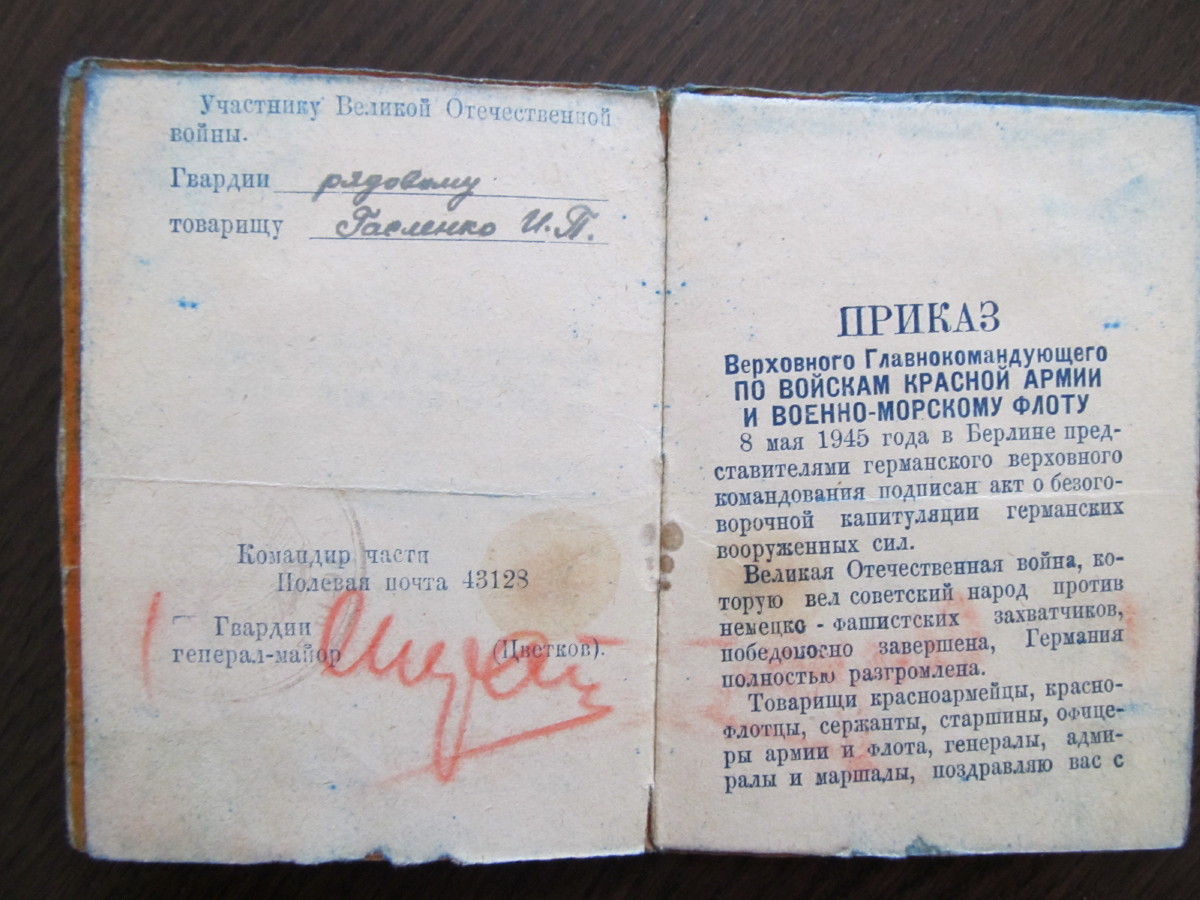 Участнику Великой Отечественной
войны.
Гвардии рядовому
товарищу Гасленко И.П.
Командир части
Полевая почта 43128
Гвардии
генерал-майор (Цветков).
ПРИКАЗ
Верховного Главнокомандующего
ПО ВОЙСКАМ КРАСНОЙ АРМИИ
И ВОЕННО-МОРСКОМУ ФЛОТУ
8 мая 1945 года в Берлине пред-
ставителями германского верховного
командования подписан акт о безого-
ворочной капитуляции германских
вооруженных сил.
Великая Отечественная война, ко-
торую вел советский народ против
немецко - фашистских захватчиков,
победоносно завершена, Германия
полностью разгромлена.
Товарищи красноармейцы, красно-
флотцы, сержанты, старшины, офице-
ры армии и флота, генералы, адми-
ралы и маршалы, поздравляю вас с